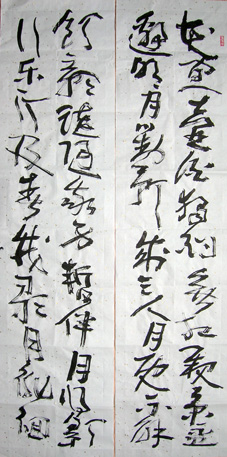 花间一壶酒獨酌無相親舉杯
邀明月對影成三人月既不解
飲影徒隨我身暫伴月將影
行乐須及春我歌月徘徊